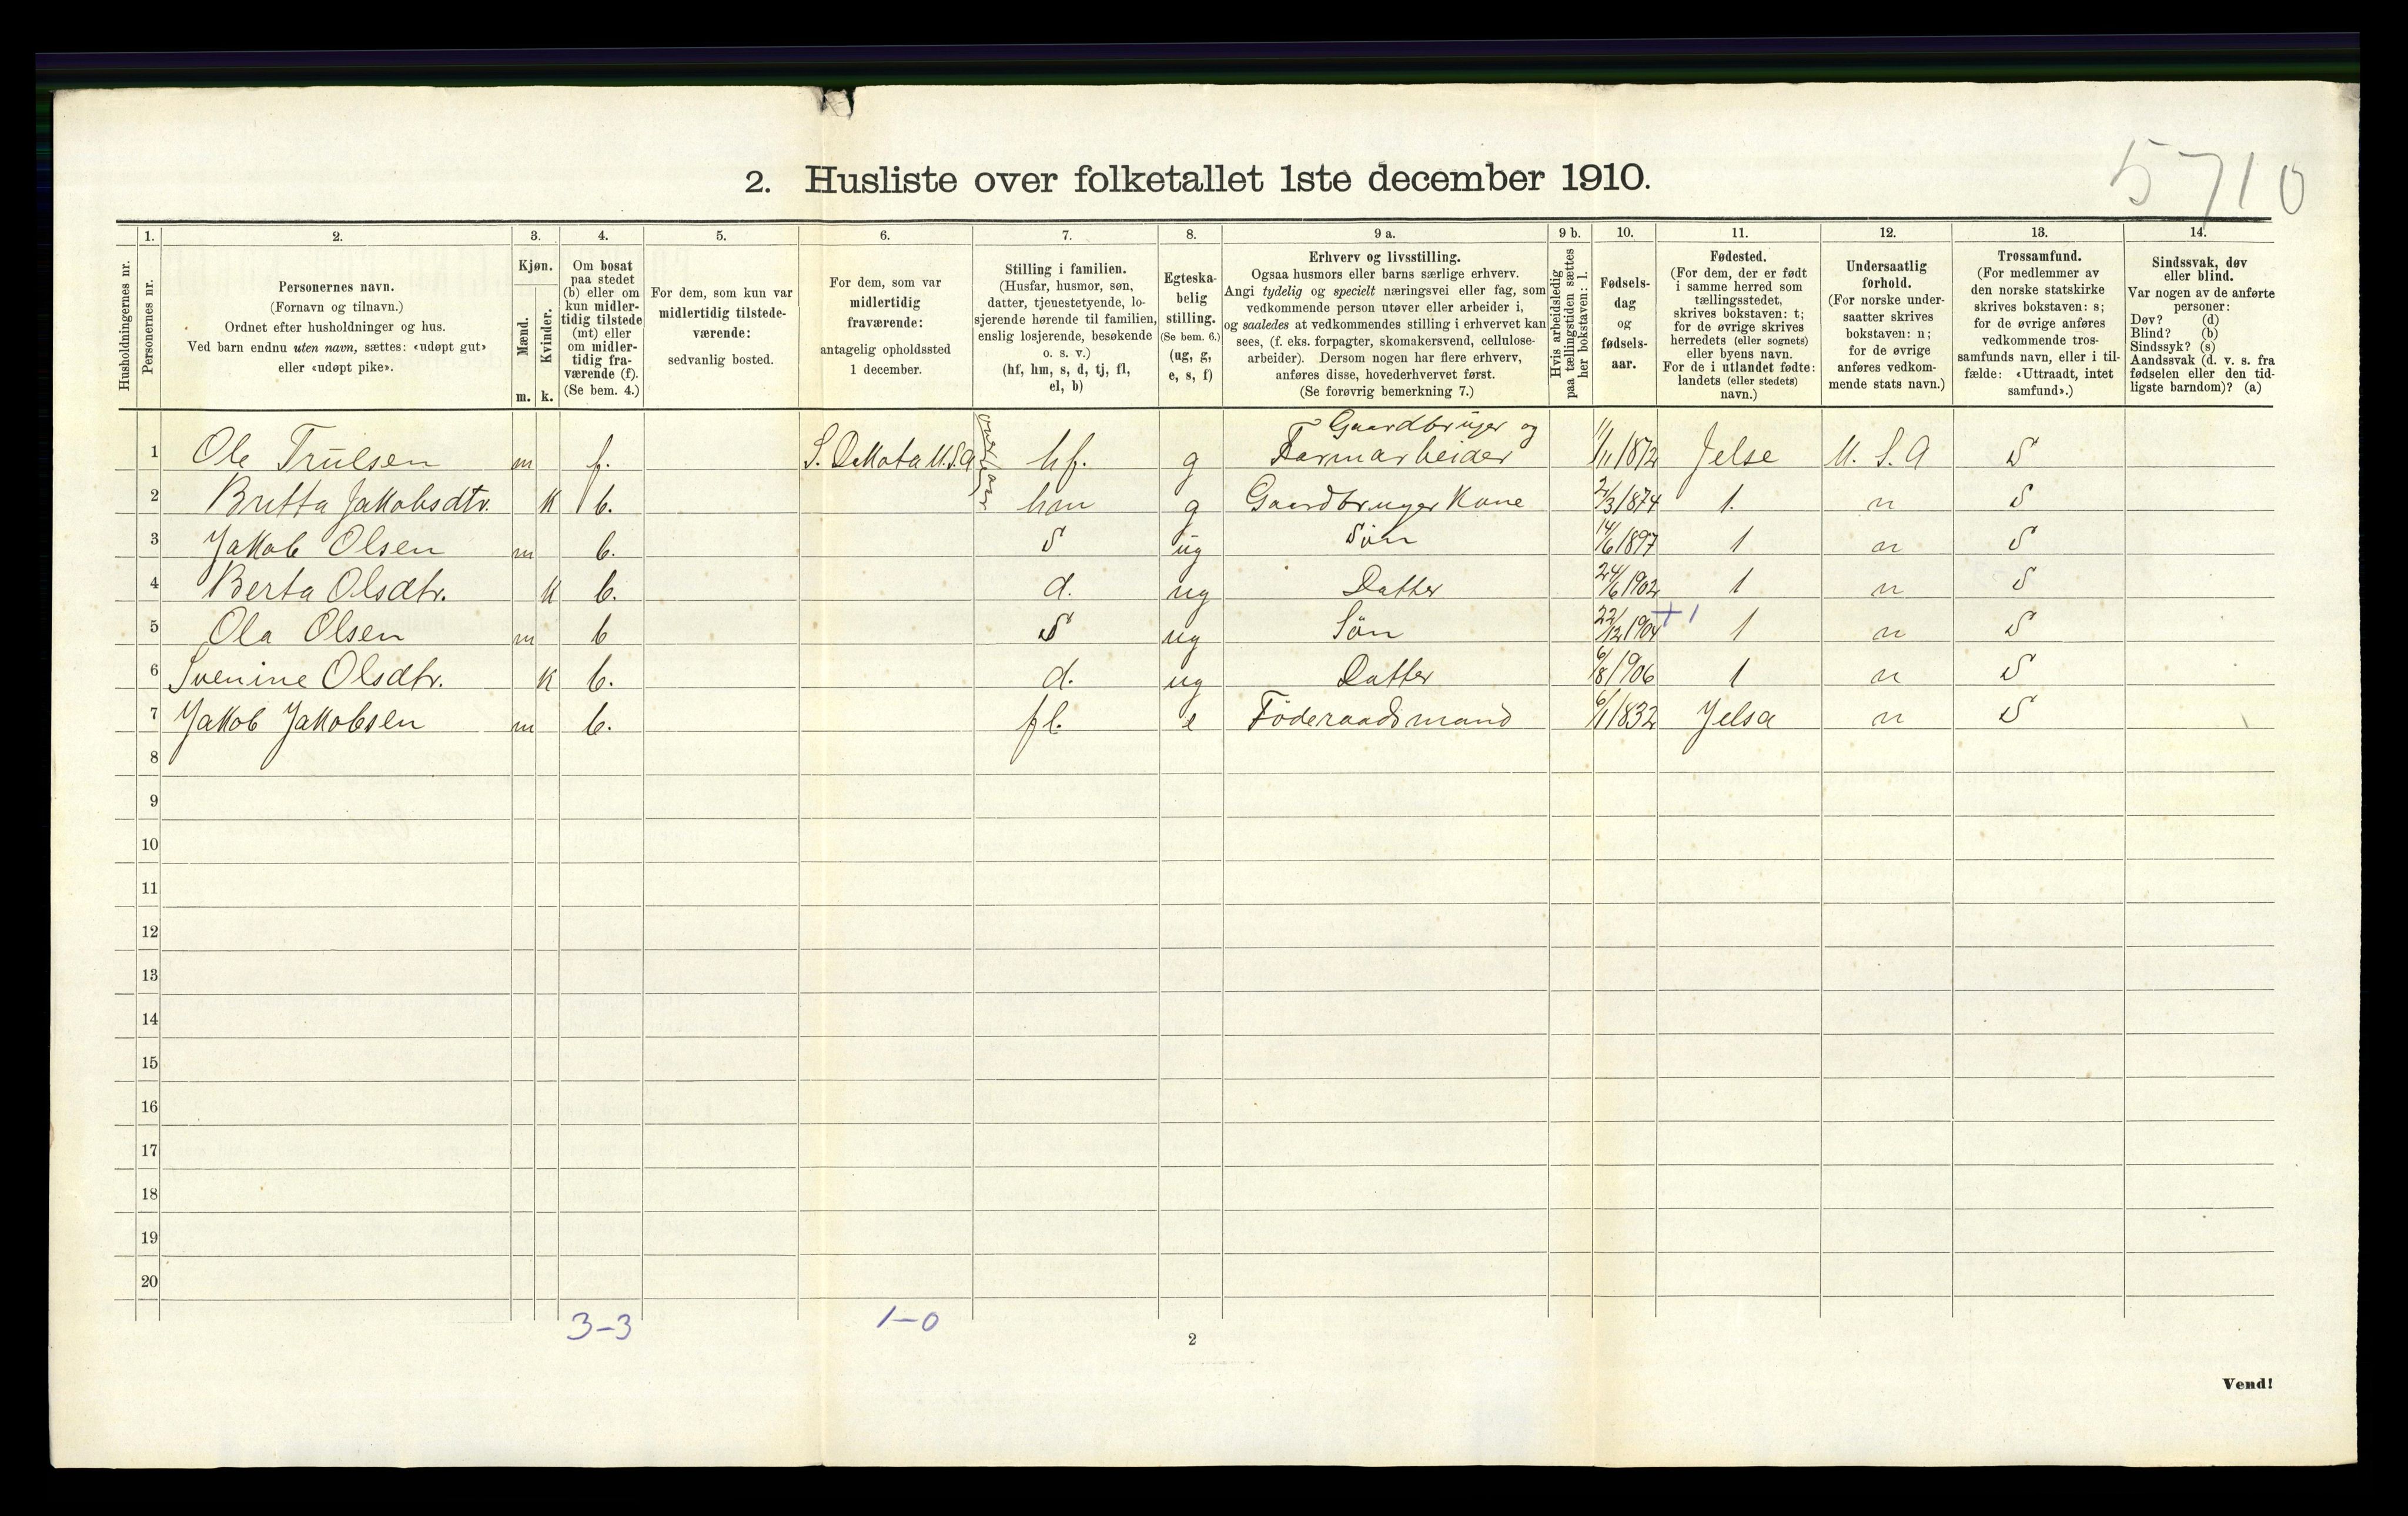 5710
2. Husliste over folketallet 1ste december 1910.
Husholdningernes nr.
1. Personernes nr.
2. Personernes navn. (Fornavn og tilnavn.) Ordnet efter husholdninger og hus. Ved barn endnu uten navn, sættes: «udøpt gut» eller «udøpt pike».
3. Kjøn. Mænd. m. Kvinder. k.
4. Om bosat paa stedet (b) eller om kun midlertidig tilstede (mt) eller om midlertidig fraværende (f). (Se bem. 4.)
5. For dem, som kun var midlertidig tilstedeværende: sedvanlig bosted.
6. For dem, som var midlertidig fraværende: antagelig opholdssted 1 december.
7. Stilling i familien. (Husfar, husmor, søn, datter, tjenestetyende, losjerende hørende til familien, enslig losjerende, besøkende o. s. v.) (hf, hm, s, d, tj, fl, el, b)
8. Egteskabelig stilling. (Se bem. 6.) (ug, g, e, s, f)
9 a. Erhverv og livsstilling. Ogsaa husmors eller barns særlige erhverv. Angi tydelig og specielt næringsvei eller fag, som vedkommende person utøver eller arbeider i, og saaledes at vedkommendes stilling i erhvervet kan sees, (f. eks. forpagter, skomakersvend, cellulosearbeider). Dersom nogen har flere erhverv, anføres disse, hovederhvervet først. (Se forøvrig bemerkning 7.)
9 b. Hvis arbeidsledig paa tællingstiden sættes her bokstaven: l.
10. Fødselsdag og fødselsaar.
11. Fødested. (For dem, der er født i samme herred som tællingsstedet, skrives bokstaven: t; for de øvrige skrives herredets (eller sognets) eller byens navn. For de i utlandet fødte: landets (eller stedets) navn.)
12. Undersaatlig forhold. (For norske undersaatter skrives bokstaven: n; for de øvrige anføres vedkommende stats navn.)
13. Trossamfund. (For medlemmer av den norske statskirke skrives bokstaven: s; for de øvrige anføres vedkommende trossamfunds navn, eller i tilfælde: «Uttraadt, intet samfund».)
14. Sindssvak, døv eller blind. Var nogen av de anførte personer: Døv? (d) Blind? (b) Sindssyk? (s) Aandssvak (d. v. s. fra fødselen eller den tidligste barndom)? (a)
1 Ole Trulsen m f. S. Dakota U.S.A hf. g Gaardbruger og Farmarbeider 11/11 1872 Jelse U. S. A S
2 Britta Jakobsdtr. K b. hm g Gaardbruger Kone 2/3 1874 1. n S
3 Jakob Olsen m b. S ug Søn 14/6 1897 1 n S
4 Berta Olsdtr. K b. d. ug Datter 24/6 1902 1 n S
5 Ola Olsen m b S ug Søn 22/12 1904 + 1 1 n S
6 Svenine Olsdtr. K b. d. ug Datter 6/8 1906 1 n S
7 Jakob Jakobsen m b. fl. e Föderaadsmand 6/1 1832 Jelsa n S
8
9
10
11
12
13
14
15
16
17
18
19
20
3-3 1-0
2
Vend!